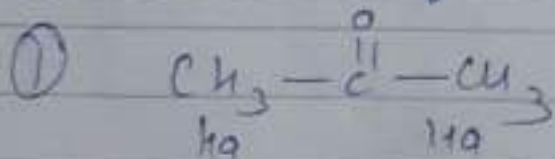 ① O
CH3 — C — CH3
Ha Ha